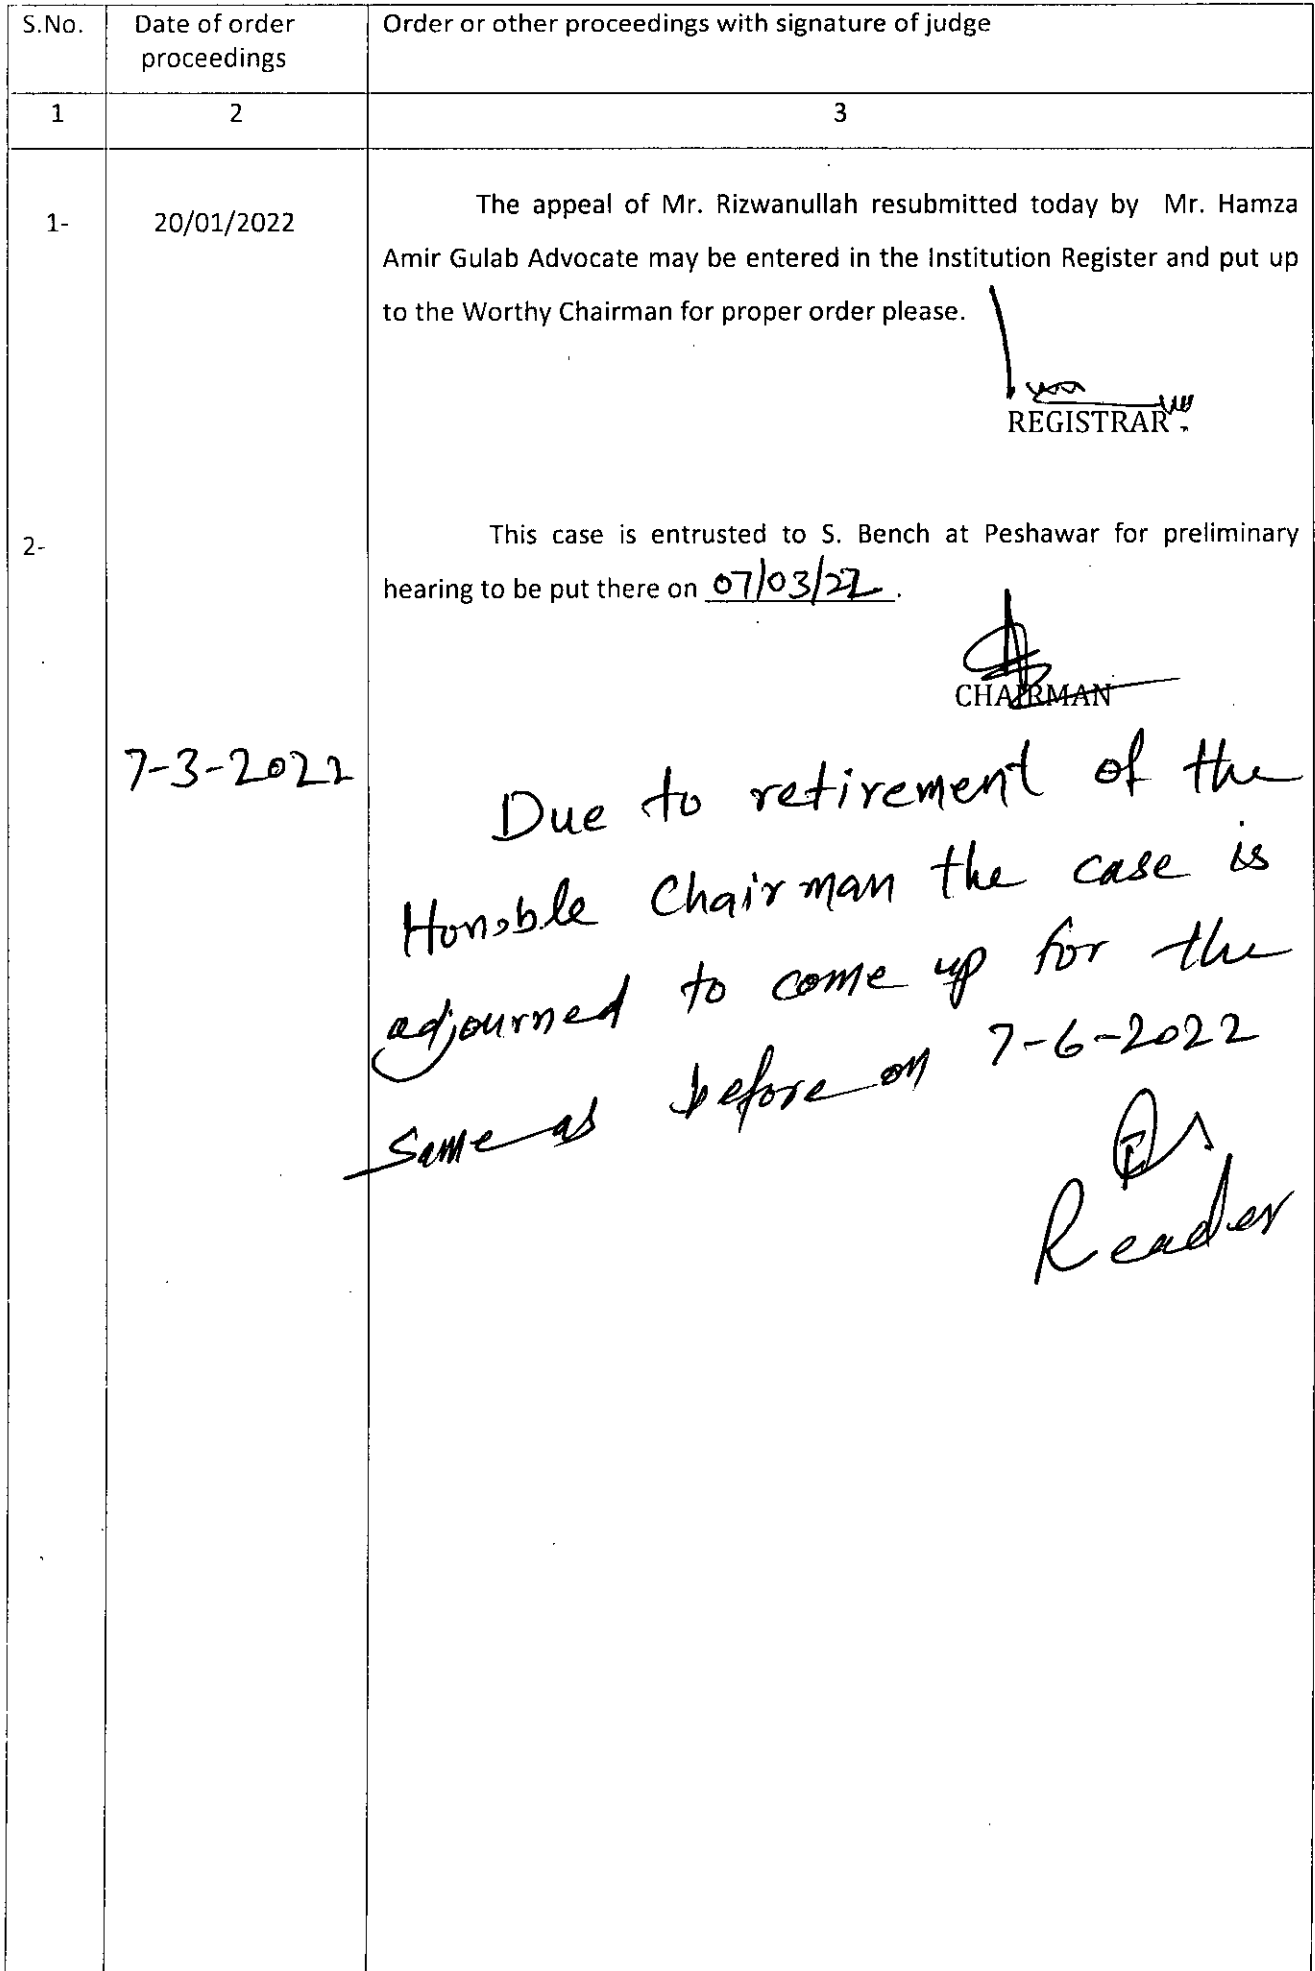 S.No. Date of order proceedings Order or other proceedings with signature of judge
1 2 3
1- 20/01/2022 The appeal of Mr. Rizwanullah resubmitted today by Mr. Hamza
Amir Gulab Advocate may be entered in the Institution Register and put up
to the Worthy Chairman for proper order please.
REGISTRAR
2- This case is entrusted to S. Bench at Peshawar for preliminary
hearing to be put there on 07/03/22.
CHAIRMAN
7-3-2022 Due to retirement of the
Honoble Chairman the case is
adjourned to come up for the
same as before on 7-6-2022
Reader